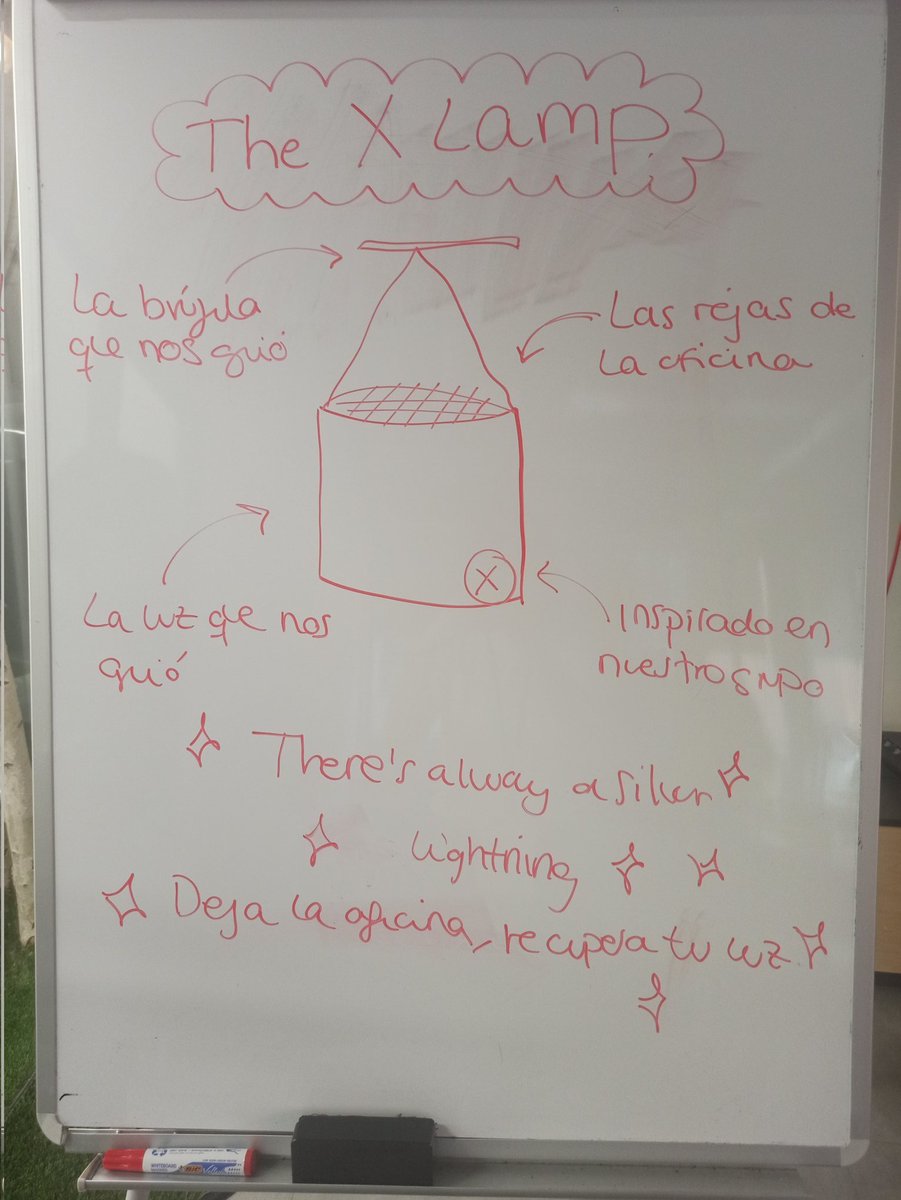 The X Lamp
La brújula
que nos guió
Las rejas de
La oficina
X
La luz que nos
guió
Inspirado en
nuestro grupo
There's alway a silver
lightning
Deja la oficina, recupera tu luz
WHITEBOARD
BIC